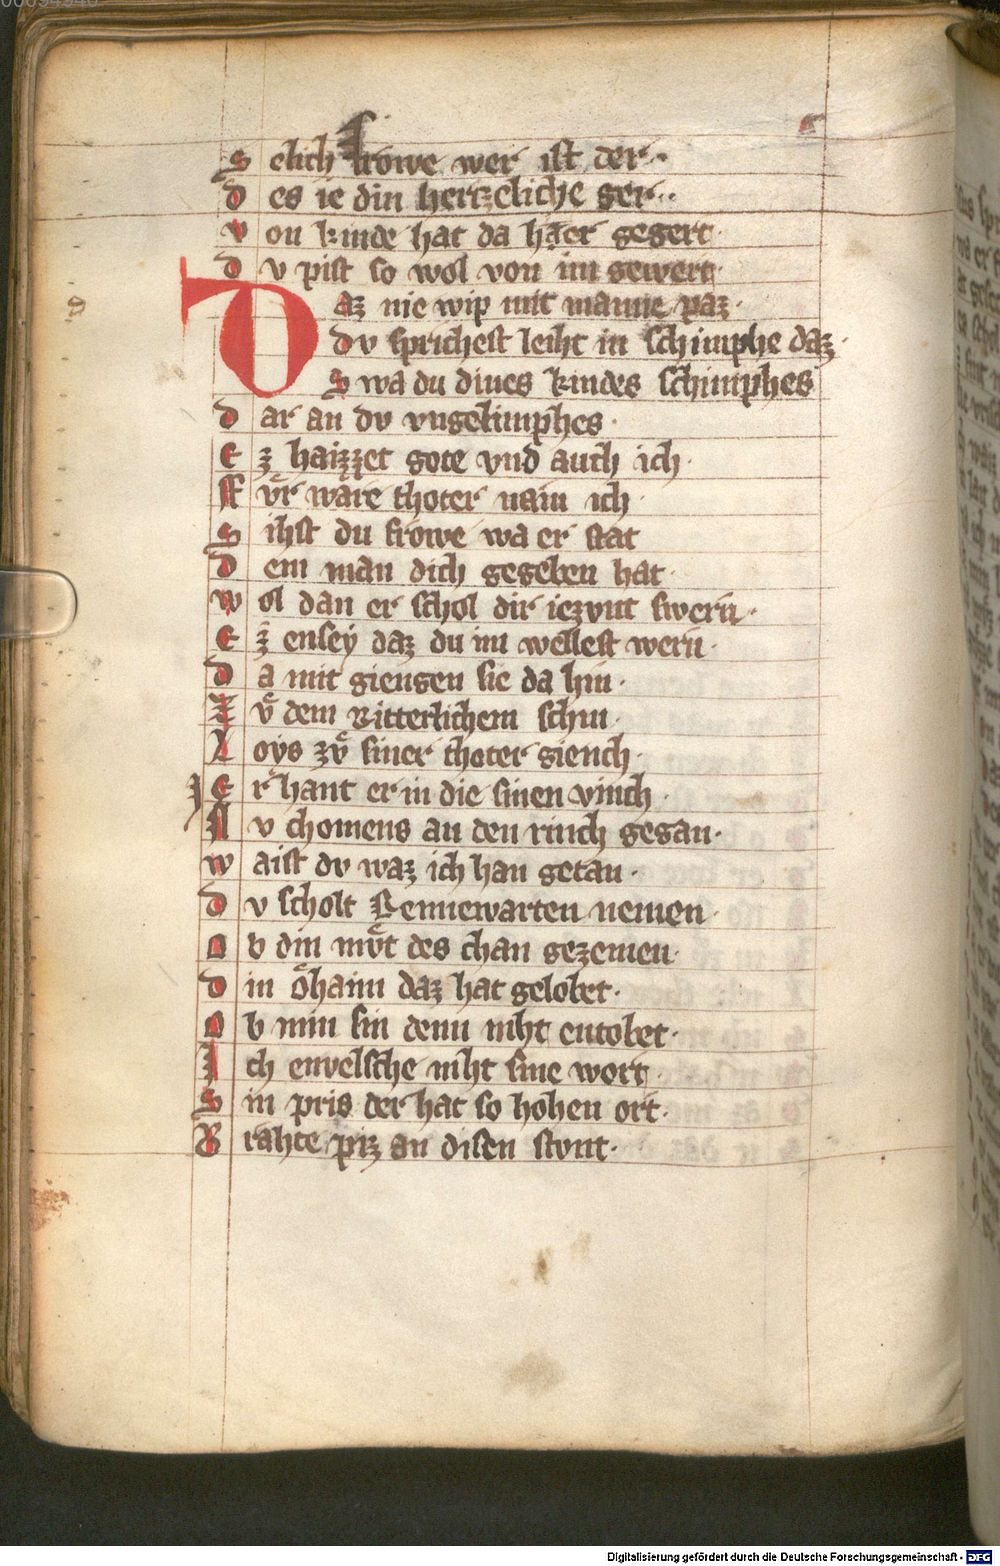 S elich frowe wer ist der·
d es ie din hertzeliche ger··
v on kinde hat da haer gegert·
d v pist so wol von im gewert·
D az nie wip mit manne paz·
dv sprichest leiht in schimphe daz·
S wa du dines kindes schimphes
d ar an dv vngelimphes·
E z haizzet gote vnd auch ich·
F vͤr ware thoter nain ich·
S ihst du frowe wa er stat
d em man dich gegeben hat·
w ol dan er schol dir iezvnt swern·
E z ensey daz du im wellest wern·
d a mit giengen sie da hin·
Z vͦ dem Ritterlichem schin·
L oys zvͦ siner thoter giench·
E r hant er in die sinen vinch·
N v chomens an den rinch gegan·
w aist dv waz ich han getan·
d v scholt Rennewarten nemen·
O b din mvͦt des chan gezemen·
d in oͤhaim daz hat gelobet·
O b min sin denn niht entobet·
I ch envelsche niht sine wort
S in pris der hat so hohen ort·
B rahte priz an disen stvnt·
Digitalisierung gefördert durch die Deutsche Forschungsgemeinschaft - DFG